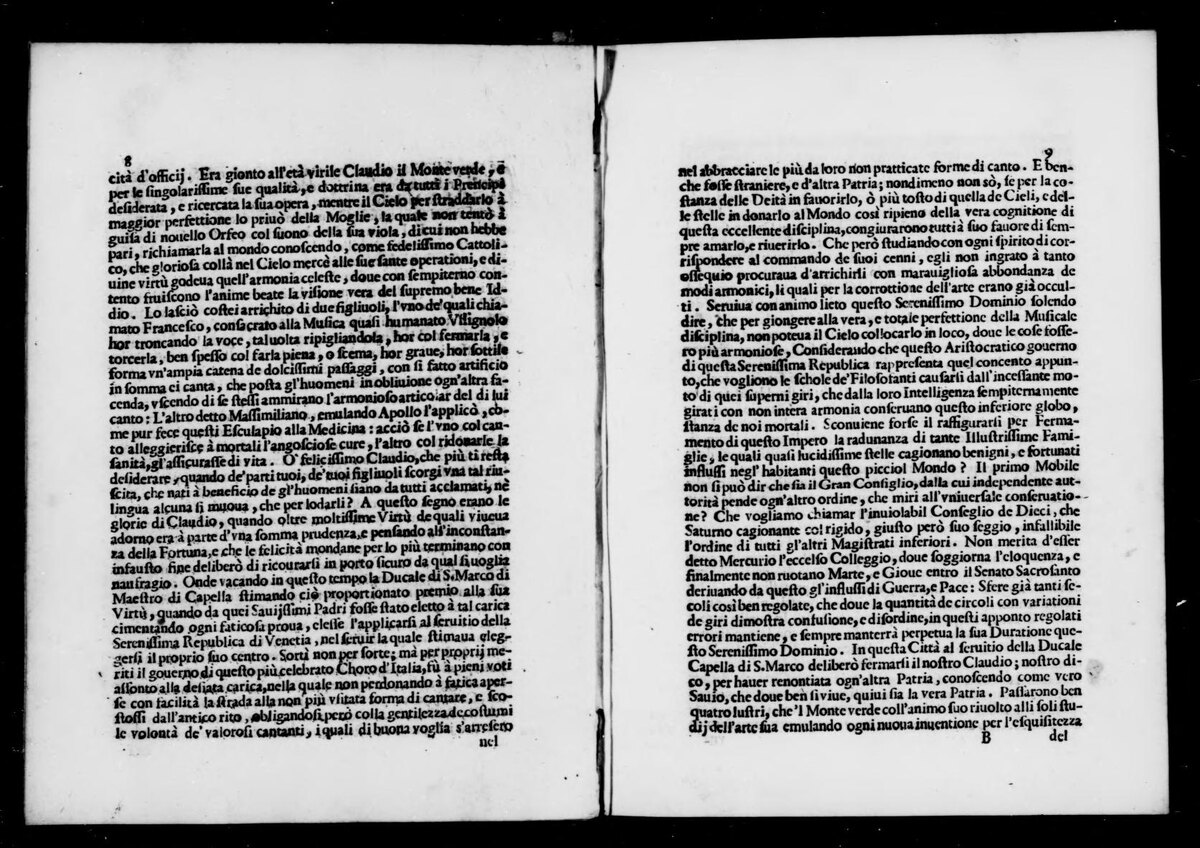 8
cità d'officij. Era gionto all'età virile Claudio il Monteverde, e
per le singolarissime sue qualità, e dottrina era da tutti i Prencipi
desiderata, e ricercata la sua opera, mentre il Cielo per straddarlo à
maggior perfettione lo priuò della Moglie, la quale non tentò à
guisa di nouello Orfeo col suono della sua viola, di cui non hebbe
pari, richiamarla al mondo conoscendo, come fedelissimo Cattoli-
co, che gloriosa collà nel Cielo mercè alle sue sante operationi, e di-
uine virtù godeua quell'armonia celeste, doue con sempiterno con-
tento fruiscono l'anime beate la visione vera del supremo bene Id-
dio. Lo lasciò costei arrichito di due figliuoli, l'vno de'quali chia-
mato Francesco, consacrato alla Musica quasi humanato Vssignolo
hor troncando la voce, tal uolta ripigliandola, hor col fermarla, e
torcerla, ben spesso col farla piena, o scema, hor graue, hor sottile
forma vn'ampia catena de dolcissimi passaggi, con sì fatto artificio
in somma ei canta, che posta gl'huomeni in obliuione ogn'altra fa-
cenda, vscendo di se stessi ammirano l'armonioso articolar del di lui
canto: L'altro detto Massimiliano, emulando Apollo l'applicò, co-
me pur fece questi Esculapio alla Medicina: acciò se l'vno col can-
to alleggierisce à mortali l'angosciose cure, l'altro col ridonarle la
sanità, gl'assicurasse di vita. O' felicissimo Claudio, che più ti resta
desiderare, quando de'parti tuoi, de'tuoi figliuoli scorgi vna tal riu-
scita, che nati à beneficio de gl'huomeni siano da tutti acclamati, nè
lingua alcuna si muoua, che per lodarli? A questo segno erano le
glorie di Claudio, quando oltre moltissime Virtù de quali viueua
adorno era à parte d'vna somma prudenza, e pensando all'inconstan-
za della Fortuna, e che le felicità mondane per lo più terminano con
infausto fine deliberò di ricourarsi in porto sicuro da qual si uoglia
naufragio. Onde vacando in questo tempo la Ducale di S. Marco di
Maestro di Capella stimando ciò proportionato premio alla sua
Virtù, quando da quei Sauijssimi Padri fosse stato eletto à tal carica
cimentando ogni faticosa proua, elesse l'applicarsi al seruitio della
Serenissima Republica di Venetia, nel seruir la quale stimaua eleg-
gersi il proprio suo centro. Sortì non per sorte; mà per proprij me-
riti il gouerno di questo più celebrato Choro d'Italia, fù à pieni voti
assonto alla desiata carica, nella quale non perdonando à fatica aper-
se con facilità la strada alla non più vsitata forma di cantare, e sco-
stossi dall'antico rito, obligandosi però colla gentilezza de costumi
le volontà de' valorosi cantanti, i quali di buona voglia s'arresero
nel
9
nel abbracciare le più da loro non pratticate forme di canto. E ben-
che fosse straniere, e d'altra Patria; nondimeno non sò, se per la co-
stanza delle Deità in fauorirlo, ò più tosto di quella de Cieli, e del-
le stelle in donarlo al Mondo così ripieno della vera cognitione di
questa eccellente disciplina, congiurarono tutti à suo fauore di sem-
pre amarlo, e riuerirlo. Che però studiando con ogni spirito di cor-
rispondere al commando de suoi cenni, egli non ingrato à tanto
ossequio procuraua d'arrichirli con marauigliosa abbondanza de
modi armonici, li quali per la corrottione dell'arte erano già occul-
ti. Seruiua con animo lieto questo Serenissimo Dominio solendo
dire, che per giongere alla vera, e totale perfettione della Musicale
disciplina, non poteua il Cielo collocarlo in loco, doue le cose fosse-
ro più armoniose, Considerando che questo Aristocratico gouerno
di questa Serenissima Republica rappresenta quel concento appun-
to, che vogliono le schole de'Filosofanti causarsi dall'incessante mo-
to di quei superni giri, che dalla loro Intelligenza sempiternamente
girati con non intera armonia conseruano questo inferiore globo,
stanza de noi mortali. Sconuiene forse il raffigurarsi per Ferma-
mento di questo Impero la radunanza di tante Illustrissime Fami-
glie, le quali quasi lucidissime stelle cagionano benigni, e fortunati
influssi negl'habitanti questo picciol Mondo? Il primo Mobile
non si può dir che sia il Gran Consiglio, dalla cui independente aut-
torità pende ogn'altro ordine, che miri all'vniuersale conseruatio-
ne? Che vogliamo chiamar l'inuiolabil Conseglio de Dieci, che
Saturno cagionante col rigido, giusto però suo seggio, infallibile
l'ordine di tutti gl'altri Magistrati inferiori. Non merita d'esser
detto Mercurio l'eccelso Colleggio, doue soggiorna l'eloquenza, e
finalmente non ruotano Marte, e Gioue entro il Senato Sacrosanto
deriuando da questo gl'influssi di Guerra, e Pace: Sfere già tanti se-
coli così ben regolate, che doue la quantità de circoli con variationi
de giri dimostra confusione, e disordine, in questi apponto regolati
errori mantiene, e sempre manterrà perpetua la sua Duratione que-
sto Serenissimo Dominio. In questa Città al seruitio della Ducale
Capella di S. Marco deliberò fermarsi il nostro Claudio; nostro di-
co, per hauer renontiata ogn'altra Patria, conoscendo come vero
Sauio, che doue ben si viue, quiui sia la vera Patria. Passarono ben
quatro lustri, che'l Monte verde coll'animo suo riuolto alli soli stu-
dij dell'arte sua emulando ogni nuoua inuentione per l'esquisitezza
B
del